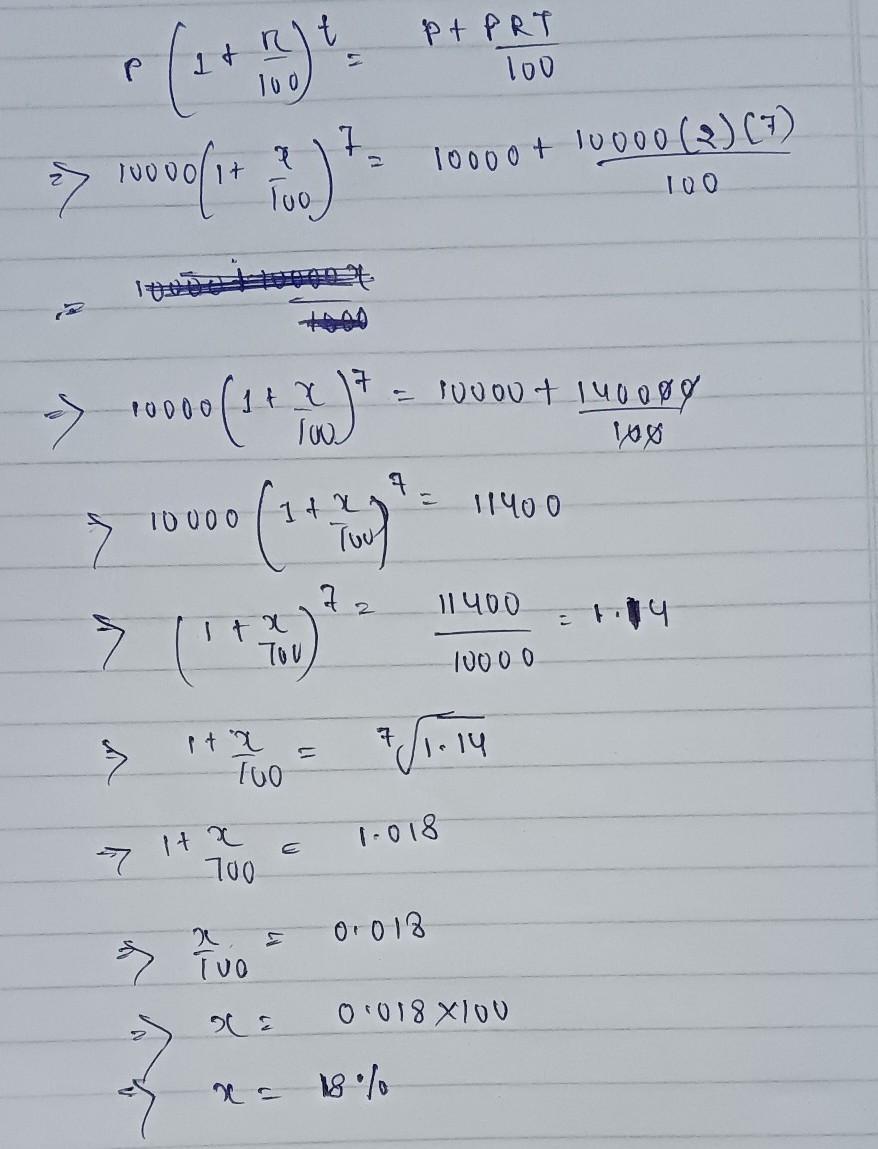 P(1 + r/100)^t = P + PRT/100
⇒ 10000(1 + x/100)^7 = 10000 + 10000(2)(7)/100
=
⇒ 10000(1 + x/100)^7 = 10000 + 140000/100
⇒ 10000(1 + x/100)^7 = 11400
⇒ (1 + x/100)^7 = 11400/10000 = 1.14
⇒ 1 + x/100 = ⁷√1.14
⇒ 1 + x/100 = 1.018
⇒ x/100 = 0.018
⇒ x = 0.018 × 100
⇒ x = 18%